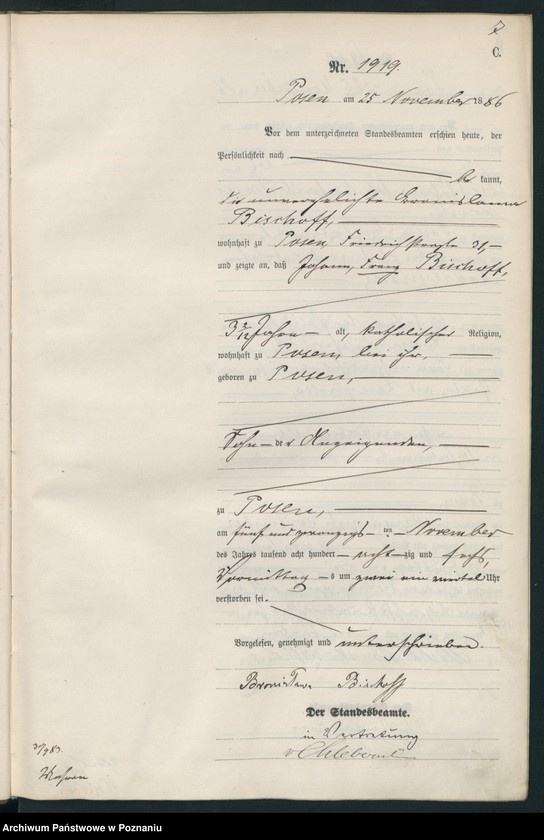 C.
Nr. 1919.
Posen am 25 November 1886
Vor dem unterzeichneten Standesbeamten erschien heute, der
Persönlichkeit nach
be kannt,
die unverehelichte Bronislawa
Bischoff,
wohnhaft zu Posen Friedrichstraße 31,
und zeigte an, daß Johann, Franz Bischoff,
3 2/12 Jahre alt, katholischer Religion,
wohnhaft zu Posen, bei ihr,
geboren zu Posen,
Sohn der Anzeigenden,
zu Posen,
am fünf und zwanzigs ten November
des Jahres tausend acht hundert acht zig und sechs,
Vormittag s um zwei ein viertel Uhr
verstorben sei.
Vorgelesen, genehmigt und unterschrieben.
Bischoff
Der Standesbeamte.
in Vertretung
Archiwum Państwowe w Poznaniu